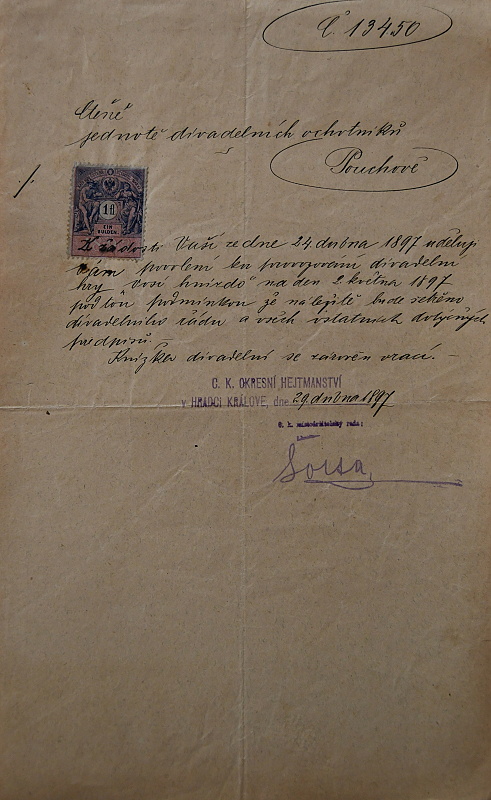 Č. 13450
Ctěné
jednotě divadelních ochotníků
Pouchově
1 fl
EIN
GULDEN
K žádosti Vaší ze dne 24. dubna 1897 uděluji
Vám povolení ku provozování divadelní
hry "Vosí hnízdo" na den 2. května 1897
pod tou podmínkou že náležitě bude šetřeno
divadelního řádu a všech ostatních dotyčných
předpisů.
Knížka divadelní se zároveň vrací. —
C. K. OKRESNÍ HEJTMANSTVÍ
v HRADCI KRÁLOVÉ, dne 29. dubna 1897
C. k. místodržitelský rada: